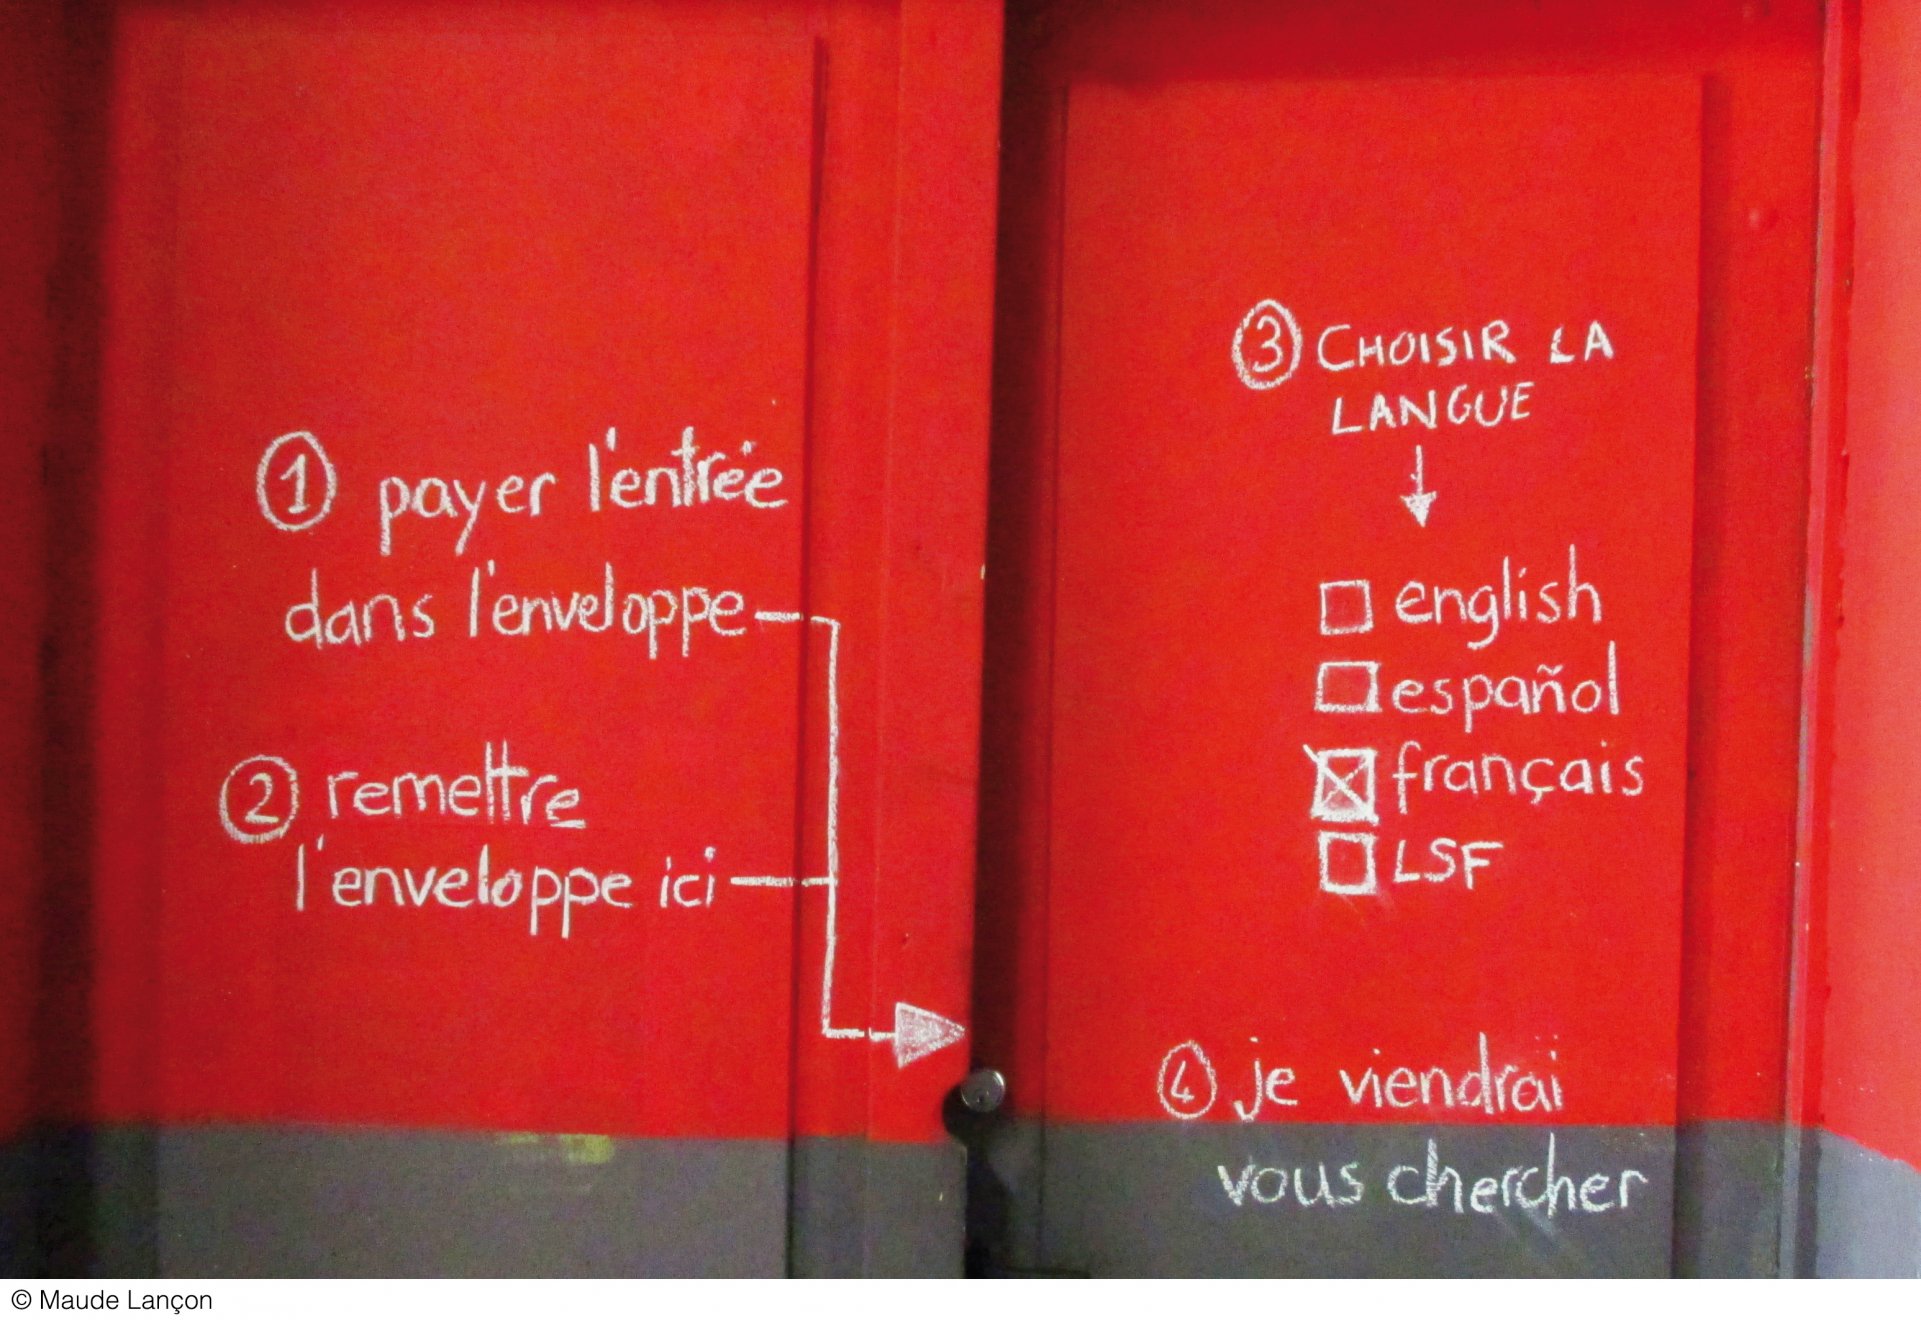 ① payer l'entrée
dans l'enveloppe
② remettre
l'enveloppe ici
③ CHOISIR LA
LANGUE
english
español
français
LSF
④ je viendrai
vous chercher
© Maude Lançon